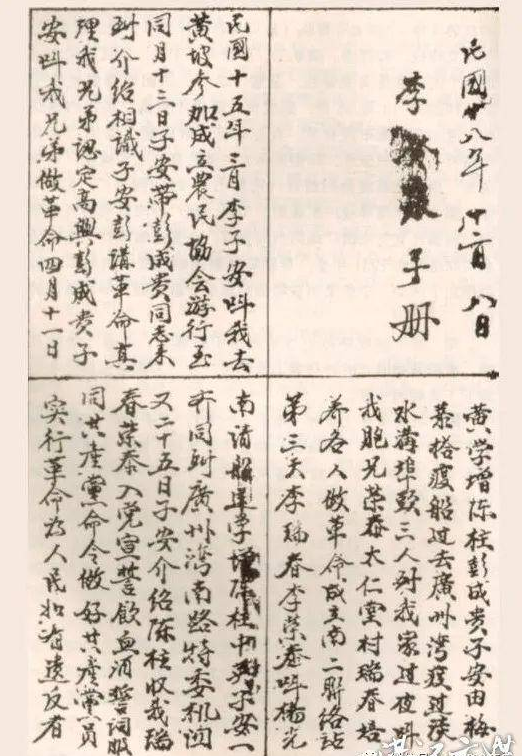 民國廿八年 月八日
李 手册
民國十五年三月李子安叫我去
黄坡参加成立農民協会游行至
同月十三日子安带彭成贵同志来
到介绍相識子安彭講革命真
理我兄弟認定高興彭成贵子
安叫我兄弟做革命四月十一日
黄学增陈柱彭成贵子安由梅
菉搭渡船过去廣州湾渡过
水溝埠头三人到我家过夜叫
我胞兄荣泰大仁堂村瑞春培
养各人做革命成立南二联络站
第三天李瑞春李荣泰叫楊光
南请船運学增陈柱 子安一
齐同到廣州湾南路特委机関
又二十五日子安介绍陈柱收我瑞
春荣泰入党宣誓飲血酒誓词服
同共產黨命令做好共產黨一员
实行革命为人民如有違反者